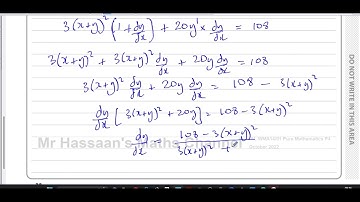 3(x+y)² (1 + dy/dx) + 20y' × dy/dx = 108
3(x+y)² + 3(x+y)² dy/dx + 20y dy/dx = 108
3(x+y)² dy/dx + 20y dy/dx = 108 - 3(x+y)²
dy/dx [3(x+y)² + 20y] = 108 - 3(x+y)²
dy/dx = 108 - 3(x+y)² / 3(x+y)² +
Mr Hassaan's Maths
DO NOT WRITE IN THIS AREA